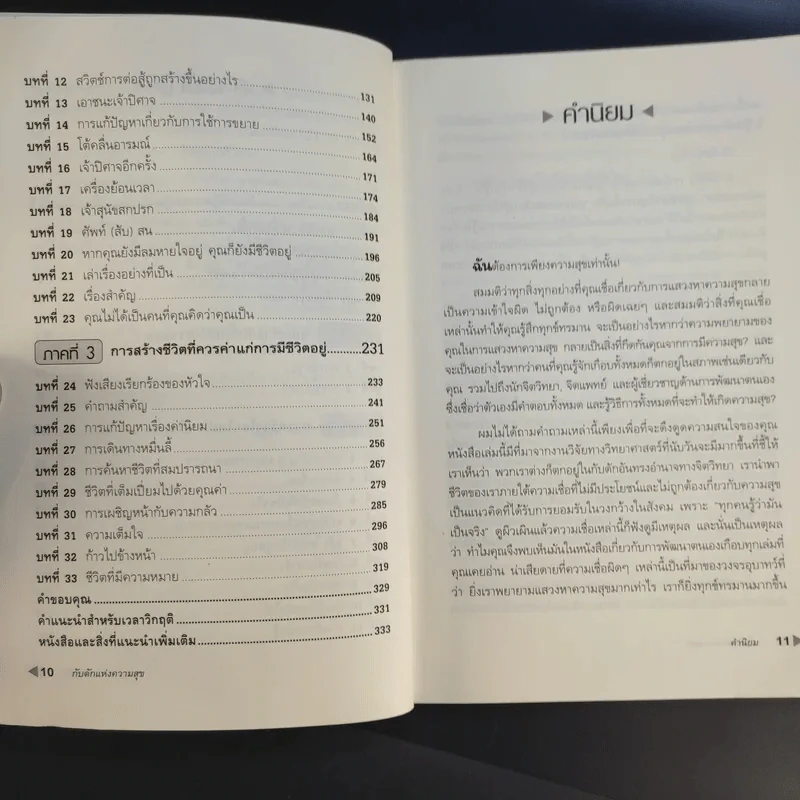 บทที่ 12 สวิตช์การต่อสู้ถูกสร้างขึ้นอย่างไร 131
บทที่ 13 เอาชนะเจ้าปิศาจ 140
บทที่ 14 การแก้ปัญหาเกี่ยวกับการใช้การขยาย 152
บทที่ 15 โต้คลื่นอารมณ์ 164
บทที่ 16 เจ้าปิศาจอีกครั้ง 171
บทที่ 17 เครื่องย้อนเวลา 174
บทที่ 18 เจ้าสุนัขสกปรก 184
บทที่ 19 ศัพท์ (สับ) สน 191
บทที่ 20 หากคุณยังมีลมหายใจอยู่ คุณก็ยังมีชีวิตอยู่ 196
บทที่ 21 เล่าเรื่องอย่างที่เป็น 205
บทที่ 22 เรื่องสำคัญ 209
บทที่ 23 คุณไม่ได้เป็นคนที่คุณคิดว่าคุณเป็น 220
ภาคที่ 3 การสร้างชีวิตที่ควรค่าแก่การมีชีวิตอยู่ 231
บทที่ 24 ฟังเสียงเรียกร้องของหัวใจ 233
บทที่ 25 คำถามสำคัญ 241
บทที่ 26 การแก้ปัญหาเรื่องค่านิยม 251
บทที่ 27 การเดินทางหมื่นลี้ 256
บทที่ 28 การค้นหาชีวิตที่สมปรารถนา 267
บทที่ 29 ชีวิตที่เต็มเปี่ยมไปด้วยคุณค่า 279
บทที่ 30 การเผชิญหน้ากับความกลัว 285
บทที่ 31 ความเต็มใจ 296
บทที่ 32 ก้าวไปข้างหน้า 308
บทที่ 33 ชีวิตที่มีความหมาย 319
คำขอบคุณ 329
คำแนะนำสำหรับเวลาวิกฤติ 331
หนังสือและสิ่งที่แนะนำเพิ่มเติม 333
10 กับดักแห่งความสุข
คำนิยม
ฉันต้องการเพียงความสุขเท่านั้น!
สมมติว่าทุกสิ่งทุกอย่างที่คุณเชื่อเกี่ยวกับการแสวงหาความสุขกลาย
เป็นความเข้าใจผิด ไม่ถูกต้อง หรือผิดเฉยๆ และสมมติว่าสิ่งที่คุณเชื่อ
เหล่านั้นทำให้คุณรู้สึกทุกข์ทรมาน จะเป็นอย่างไรหากว่าความพยายามของ
คุณในการแสวงหาความสุข กลายเป็นสิ่งที่กีดกันคุณจากการมีความสุข? และ
จะเป็นอย่างไรหากว่าคนที่คุณรู้จักเกือบทั้งหมดก็ตกอยู่ในสภาพเช่นเดียวกับ
คุณ รวมไปถึงนักจิตวิทยา, จิตแพทย์ และผู้เชี่ยวชาญด้านการพัฒนาตนเอง
ซึ่งเชื่อว่าตัวเองมีคำตอบทั้งหมด และรู้วิธีการทั้งหมดที่จะทำให้เกิดความสุข?
ผมไม่ได้ถามคำถามเหล่านี้เพียงเพื่อที่จะดึงดูดความสนใจของคุณ
หนังสือเล่มนี้มีที่มาจากงานวิจัยทางวิทยาศาสตร์ที่นับวันจะมีมากขึ้นที่ชี้ให้
เราเห็นว่า พวกเราต่างก็ตกอยู่ในกับดักอันทรงอำนาจทางจิตวิทยา เรานำพา
ชีวิตของเราภายใต้ความเชื่อที่ไม่มีประโยชน์และไม่ถูกต้องเกี่ยวกับความสุข
เป็นแนวคิดที่ได้รับการยอมรับในวงกว้างในสังคม เพราะ "ทุกคนรู้ว่ามัน
เป็นจริง" ดูผิวเผินแล้วความเชื่อเหล่านี้ก็ฟังดูมีเหตุผล และนั่นเป็นเหตุผล
ว่า ทำไมคุณจึงพบเห็นมันในหนังสือเกี่ยวกับการพัฒนาตนเองเกือบทุกเล่มที่
คุณเคยอ่าน น่าเสียดายที่ความเชื่อผิดๆ เหล่านี้เป็นที่มาของวงจรอุบาทว์ที่
ว่า ยิ่งเราพยายามแสวงหาความสุขมากเท่าไร เราก็ยิ่งทุกข์ทรมานมากขึ้น
คำนิยม 11